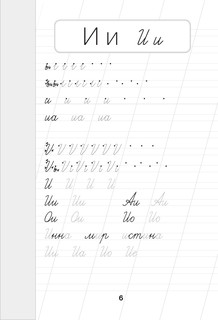 И и И и
и и и и
иа иа иа
И И И И
Ии Ии Аи Аи
Ои Ои Ио Ио
Инна мир истина
Ии Иа Ио Ио
6